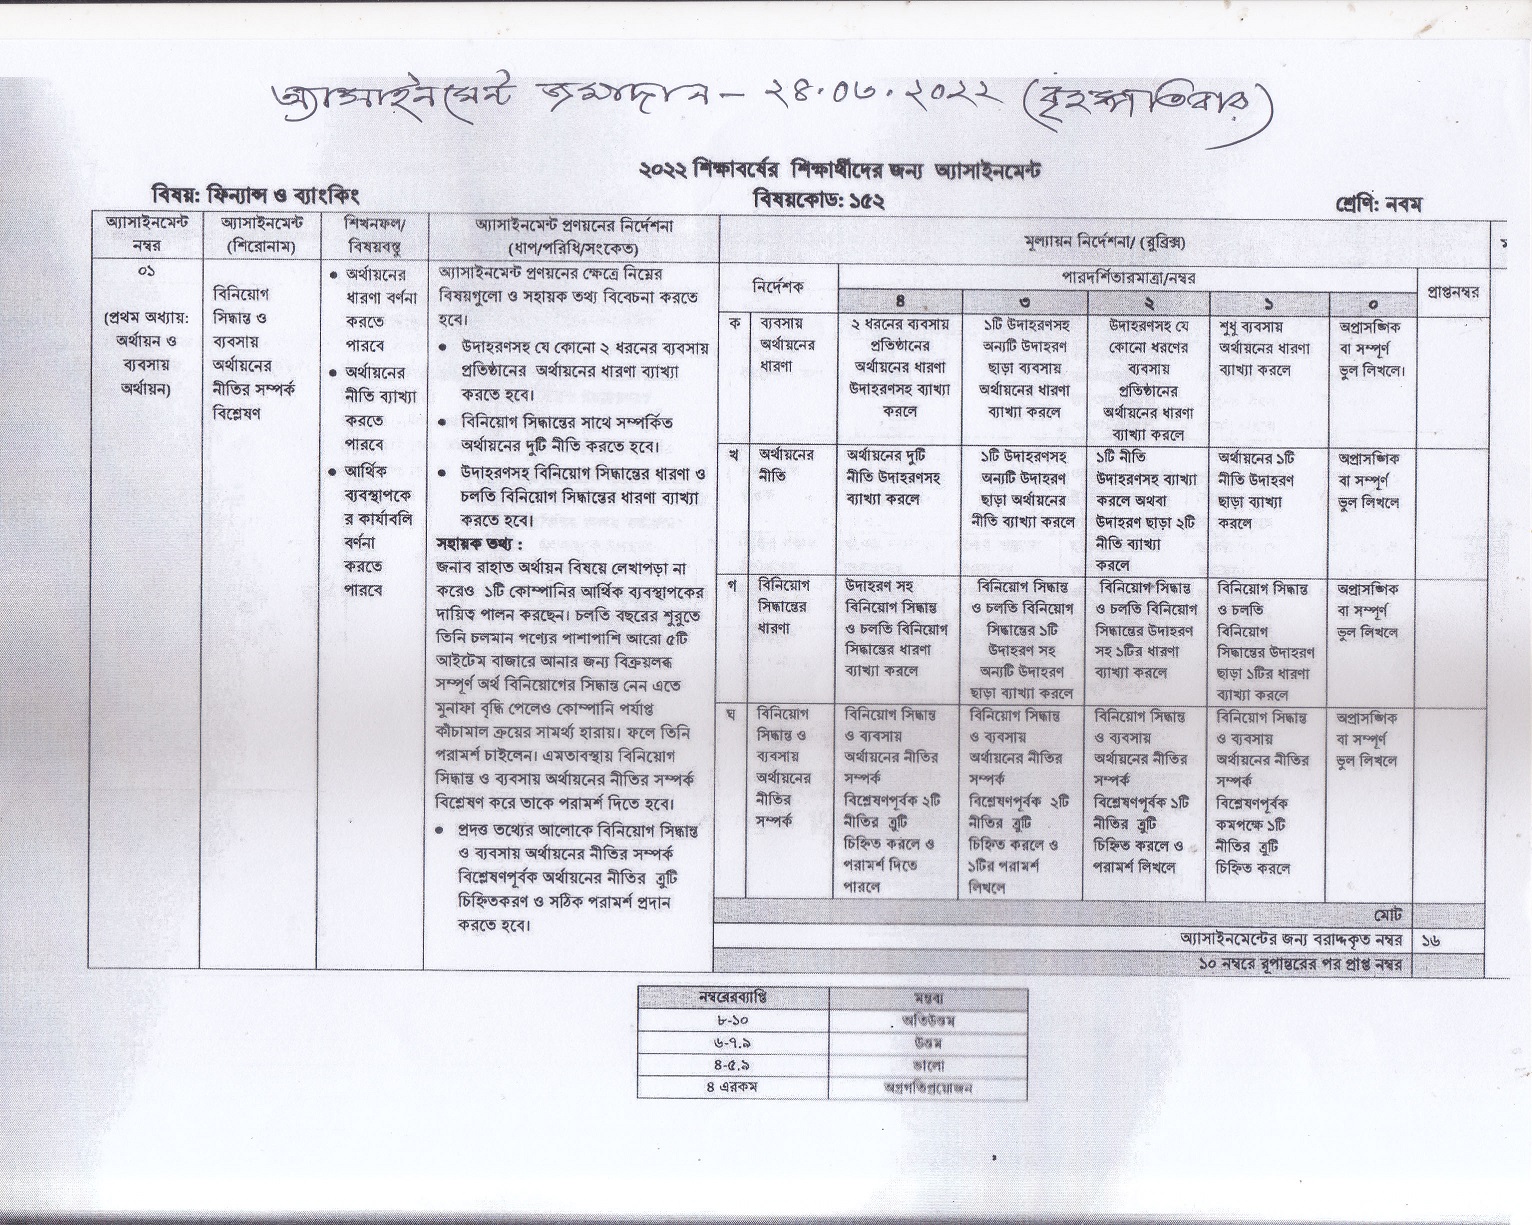 অ্যাসাইনমেন্ট জমাদান - ২৪.০৩.২০২২ (বৃহস্পতিবার)
২০২২ শিক্ষাবর্ষের শিক্ষার্থীদের জন্য অ্যাসাইনমেন্ট
বিষয়: ফিন্যান্স ও ব্যাংকিং
বিষয়কোড: ১৫২
শ্রেণি: নবম
অ্যাসাইনমেন্ট
নম্বর
অ্যাসাইনমেন্ট
(শিরোনাম)
শিখনফল/
বিষয়বস্তু
অ্যাসাইনমেন্ট প্রণয়নের নির্দেশনা
(ধাপ/পরিধি/সংকেত)
মূল্যায়ন নির্দেশনা/ (রুব্রিক্স)
০১
(প্রথম অধ্যায়:
অর্থায়ন ও
ব্যবসায়
অর্থায়ন)
বিনিয়োগ
সিদ্ধান্ত ও
ব্যবসায়
অর্থায়নের
নীতির সম্পর্ক
বিশ্লেষণ
● অর্থায়নের
ধারণা বর্ণনা
করতে
পারবে
● অর্থায়নের
নীতি ব্যাখ্যা
করতে
পারবে
● আর্থিক
ব্যবস্থাপকে
র কার্যাবলি
বর্ণনা
করতে
পারবে
অ্যাসাইনমেন্ট প্রণয়নের ক্ষেত্রে নিম্নের
বিষয়গুলো ও সহায়ক তথ্য বিবেচনা করতে
হবে।
● উদাহরণসহ যে কোনো ২ ধরনের ব্যবসায়
প্রতিষ্ঠানের অর্থায়নের ধারণা ব্যাখ্যা
করতে হবে।
● বিনিয়োগ সিদ্ধান্তের সাথে সম্পর্কিত
অর্থায়নের দুটি নীতি করতে হবে।
● উদাহরণসহ বিনিয়োগ সিদ্ধান্তের ধারণা ও
চলতি বিনিয়োগ সিদ্ধান্তের ধারণা ব্যাখ্যা
করতে হবে।
সহায়ক তথ্য :
জনাব রাহাত অর্থায়ন বিষয়ে লেখাপড়া না
করেও ১টি কোম্পানির আর্থিক ব্যবস্থাপকের
দায়িত্ব পালন করছেন। চলতি বছরের শুরুতে
তিনি চলমান পণ্যের পাশাপাশি আরো ৫টি
আইটেম বাজারে আনার জন্য বিক্রয়লব্ধ
সম্পূর্ণ অর্থ বিনিয়োগের সিদ্ধান্ত নেন এতে
মুনাফা বৃদ্ধি পেলেও কোম্পানি পর্যাপ্ত
কাঁচামাল ক্রয়ের সামর্থ্য হারায়। ফলে তিনি
পরামর্শ চাইলেন। এমতাবস্থায় বিনিয়োগ
সিদ্ধান্ত ও ব্যবসায় অর্থায়নের নীতির সম্পর্ক
বিশ্লেষণ করে তাকে পরামর্শ দিতে হবে।
● প্রদত্ত তথ্যের আলোকে বিনিয়োগ সিদ্ধান্ত
ও ব্যবসায় অর্থায়নের নীতির সম্পর্ক
বিশ্লেষণপূর্বক অর্থায়নের নীতির ত্রুটি
চিহ্নিতকরণ ও সঠিক পরামর্শ প্রদান
করতে হবে।
নির্দেশক
পারদর্শিতারমাত্রা/নম্বর
প্রাপ্তনম্বর
৪ ৩ ২ ১ ০
ক
ব্যবসায়
অর্থায়নের
ধারণা
২ ধরনের ব্যবসায়
প্রতিষ্ঠানের
অর্থায়নের ধারণা
উদাহরণসহ ব্যাখ্যা
করলে
১টি উদাহরণসহ
অন্যটি উদাহরণ
ছাড়া ব্যবসায়
অর্থায়নের ধারণা
ব্যাখ্যা করলে
উদাহরণসহ যে
কোনো ধরণের
ব্যবসায়
প্রতিষ্ঠানের
অর্থায়নের ধারণা
ব্যাখ্যা করলে
শুধু ব্যবসায়
অর্থায়নের ধারণা
ব্যাখ্যা করলে
অপ্রাসঙ্গিক
বা সম্পূর্ণ
ভুল লিখলে।
খ
অর্থায়নের
নীতি
অর্থায়নের দুটি
নীতি উদাহরণসহ
ব্যাখ্যা করলে
১টি উদাহরণসহ
অন্যটি উদাহরণ
ছাড়া অর্থায়নের
নীতি ব্যাখ্যা করলে
১টি নীতি
উদাহরণসহ ব্যাখ্যা
করলে অথবা
উদাহরণ ছাড়া ২টি
নীতি ব্যাখ্যা
করলে
অর্থায়নের ১টি
নীতি উদাহরণ
ছাড়া ব্যাখ্যা
করলে
অপ্রাসঙ্গিক
বা সম্পূর্ণ
ভুল লিখলে
গ
বিনিয়োগ
সিদ্ধান্তের
ধারণা
উদাহরণ সহ
বিনিয়োগ সিদ্ধান্ত
ও চলতি বিনিয়োগ
সিদ্ধান্তের ধারণা
ব্যাখ্যা করলে
বিনিয়োগ সিদ্ধান্ত
ও চলতি বিনিয়োগ
সিদ্ধান্তের ১টি
উদাহরণ সহ
অন্যটি উদাহরণ
ছাড়া ব্যাখ্যা করলে
বিনিয়োগ সিদ্ধান্ত
ও চলতি বিনিয়োগ
সিদ্ধান্তের উদাহরণ
সহ ১টির ধারণা
ব্যাখ্যা করলে
বিনিয়োগ সিদ্ধান্ত
ও চলতি
বিনিয়োগ
সিদ্ধান্তের উদাহরণ
ছাড়া ১টির ধারণা
ব্যাখ্যা করলে
অপ্রাসঙ্গিক
বা সম্পূর্ণ
ভুল লিখলে
ঘ
বিনিয়োগ
সিদ্ধান্ত ও
ব্যবসায়
অর্থায়নের
নীতির
সম্পর্ক
বিনিয়োগ সিদ্ধান্ত
ও ব্যবসায়
অর্থায়নের নীতির
সম্পর্ক
বিশ্লেষণপূর্বক ২টি
নীতির ত্রুটি
চিহ্নিত করলে ও
পরামর্শ দিতে
পারলে
বিনিয়োগ সিদ্ধান্ত
ও ব্যবসায়
অর্থায়নের নীতির
সম্পর্ক
বিশ্লেষণপূর্বক ২টি
নীতির ত্রুটি
চিহ্নিত করলে ও
১টির পরামর্শ
লিখলে
বিনিয়োগ সিদ্ধান্ত
ও ব্যবসায়
অর্থায়নের নীতির
সম্পর্ক
বিশ্লেষণপূর্বক ১টি
নীতির ত্রুটি
চিহ্নিত করলে ও
পরামর্শ লিখলে
বিনিয়োগ সিদ্ধান্ত
ও ব্যবসায়
অর্থায়নের নীতির
সম্পর্ক
বিশ্লেষণপূর্বক
কমপক্ষে ১টি
নীতির ত্রুটি
চিহ্নিত করলে
অপ্রাসঙ্গিক
বা সম্পূর্ণ
ভুল লিখলে
মোট
অ্যাসাইনমেন্টের জন্য বরাদ্দকৃত নম্বর ১৬
১০ নম্বরে রূপান্তরের পর প্রাপ্ত নম্বর
নম্বরেরব্যাপ্তি মন্তব্য
৮-১০ অতিউত্তম
৬-৭.৯ উত্তম
৪-৫.৯ ভালো
৪ এরকম অগ্রগতিপ্রয়োজন